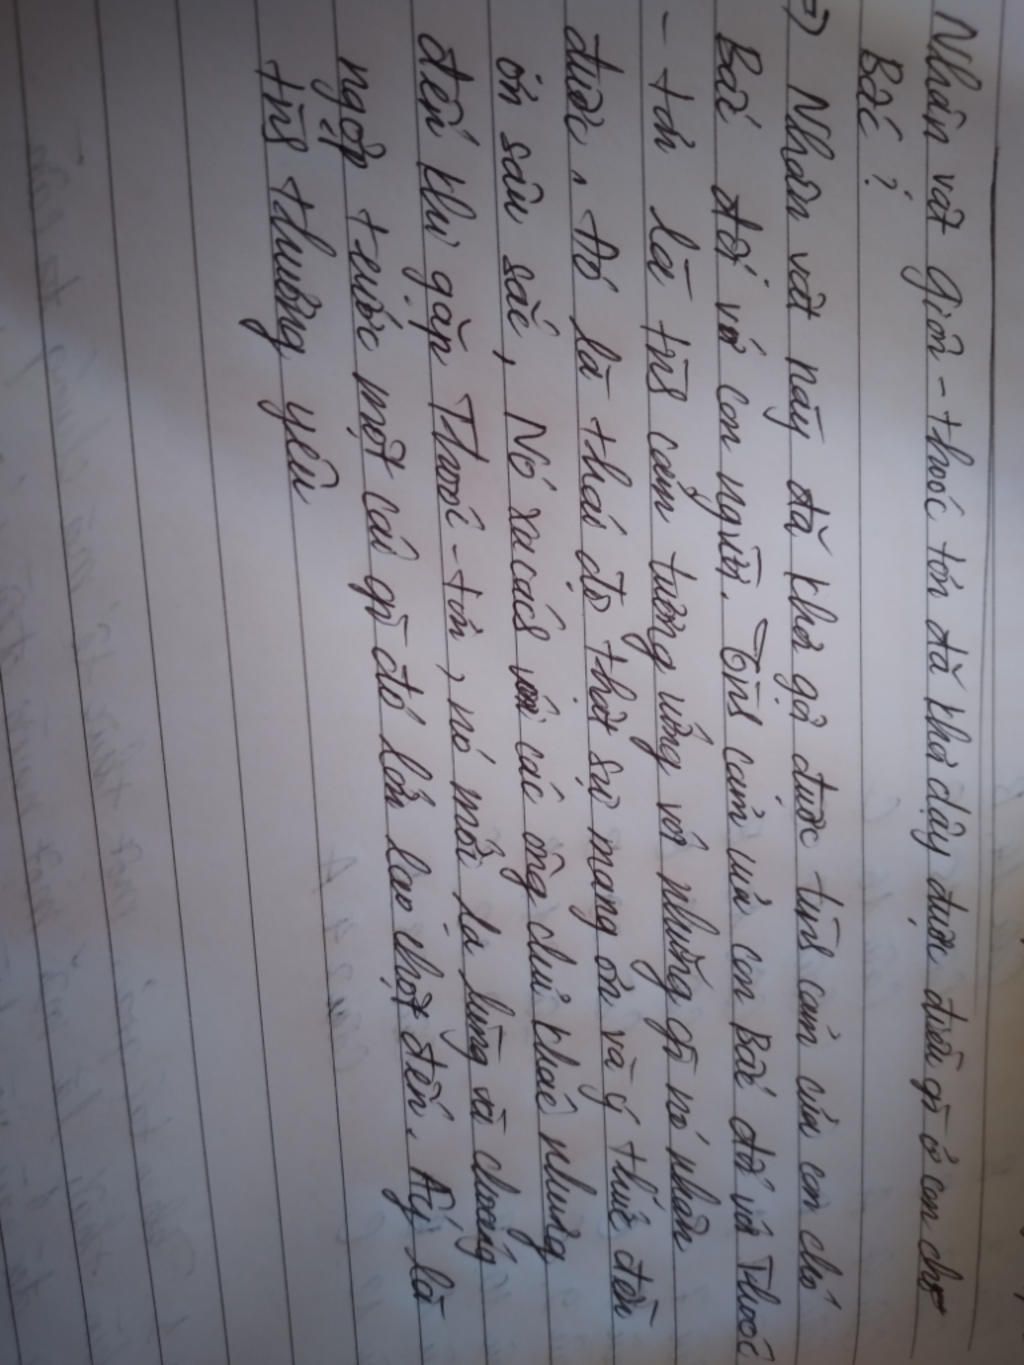 Nhân vật giôn - thoóc tơn đã khơ dậy được điều gì ở con chó
Bấc ?
=) Nhân vật này đã khơ gợi được tìns cảm của con chó
Bấc đối với con người. Tìns cảm của con Bấc đối với Thoóc
- tơn là tìns cảm tương ứng với những gì nó nhận
được, đó là thái độ thật sự mang ơn và ý thức đền
ơn sâu sắc, Nó xa cács với các ông chủ khác nhưng
đến khi gặp Thoóc - tơn, nó mới lạ lùng và choáng
ngợp trước một cái gì đó lớn lao chợt đến. Ấy là
tìns thương yêu